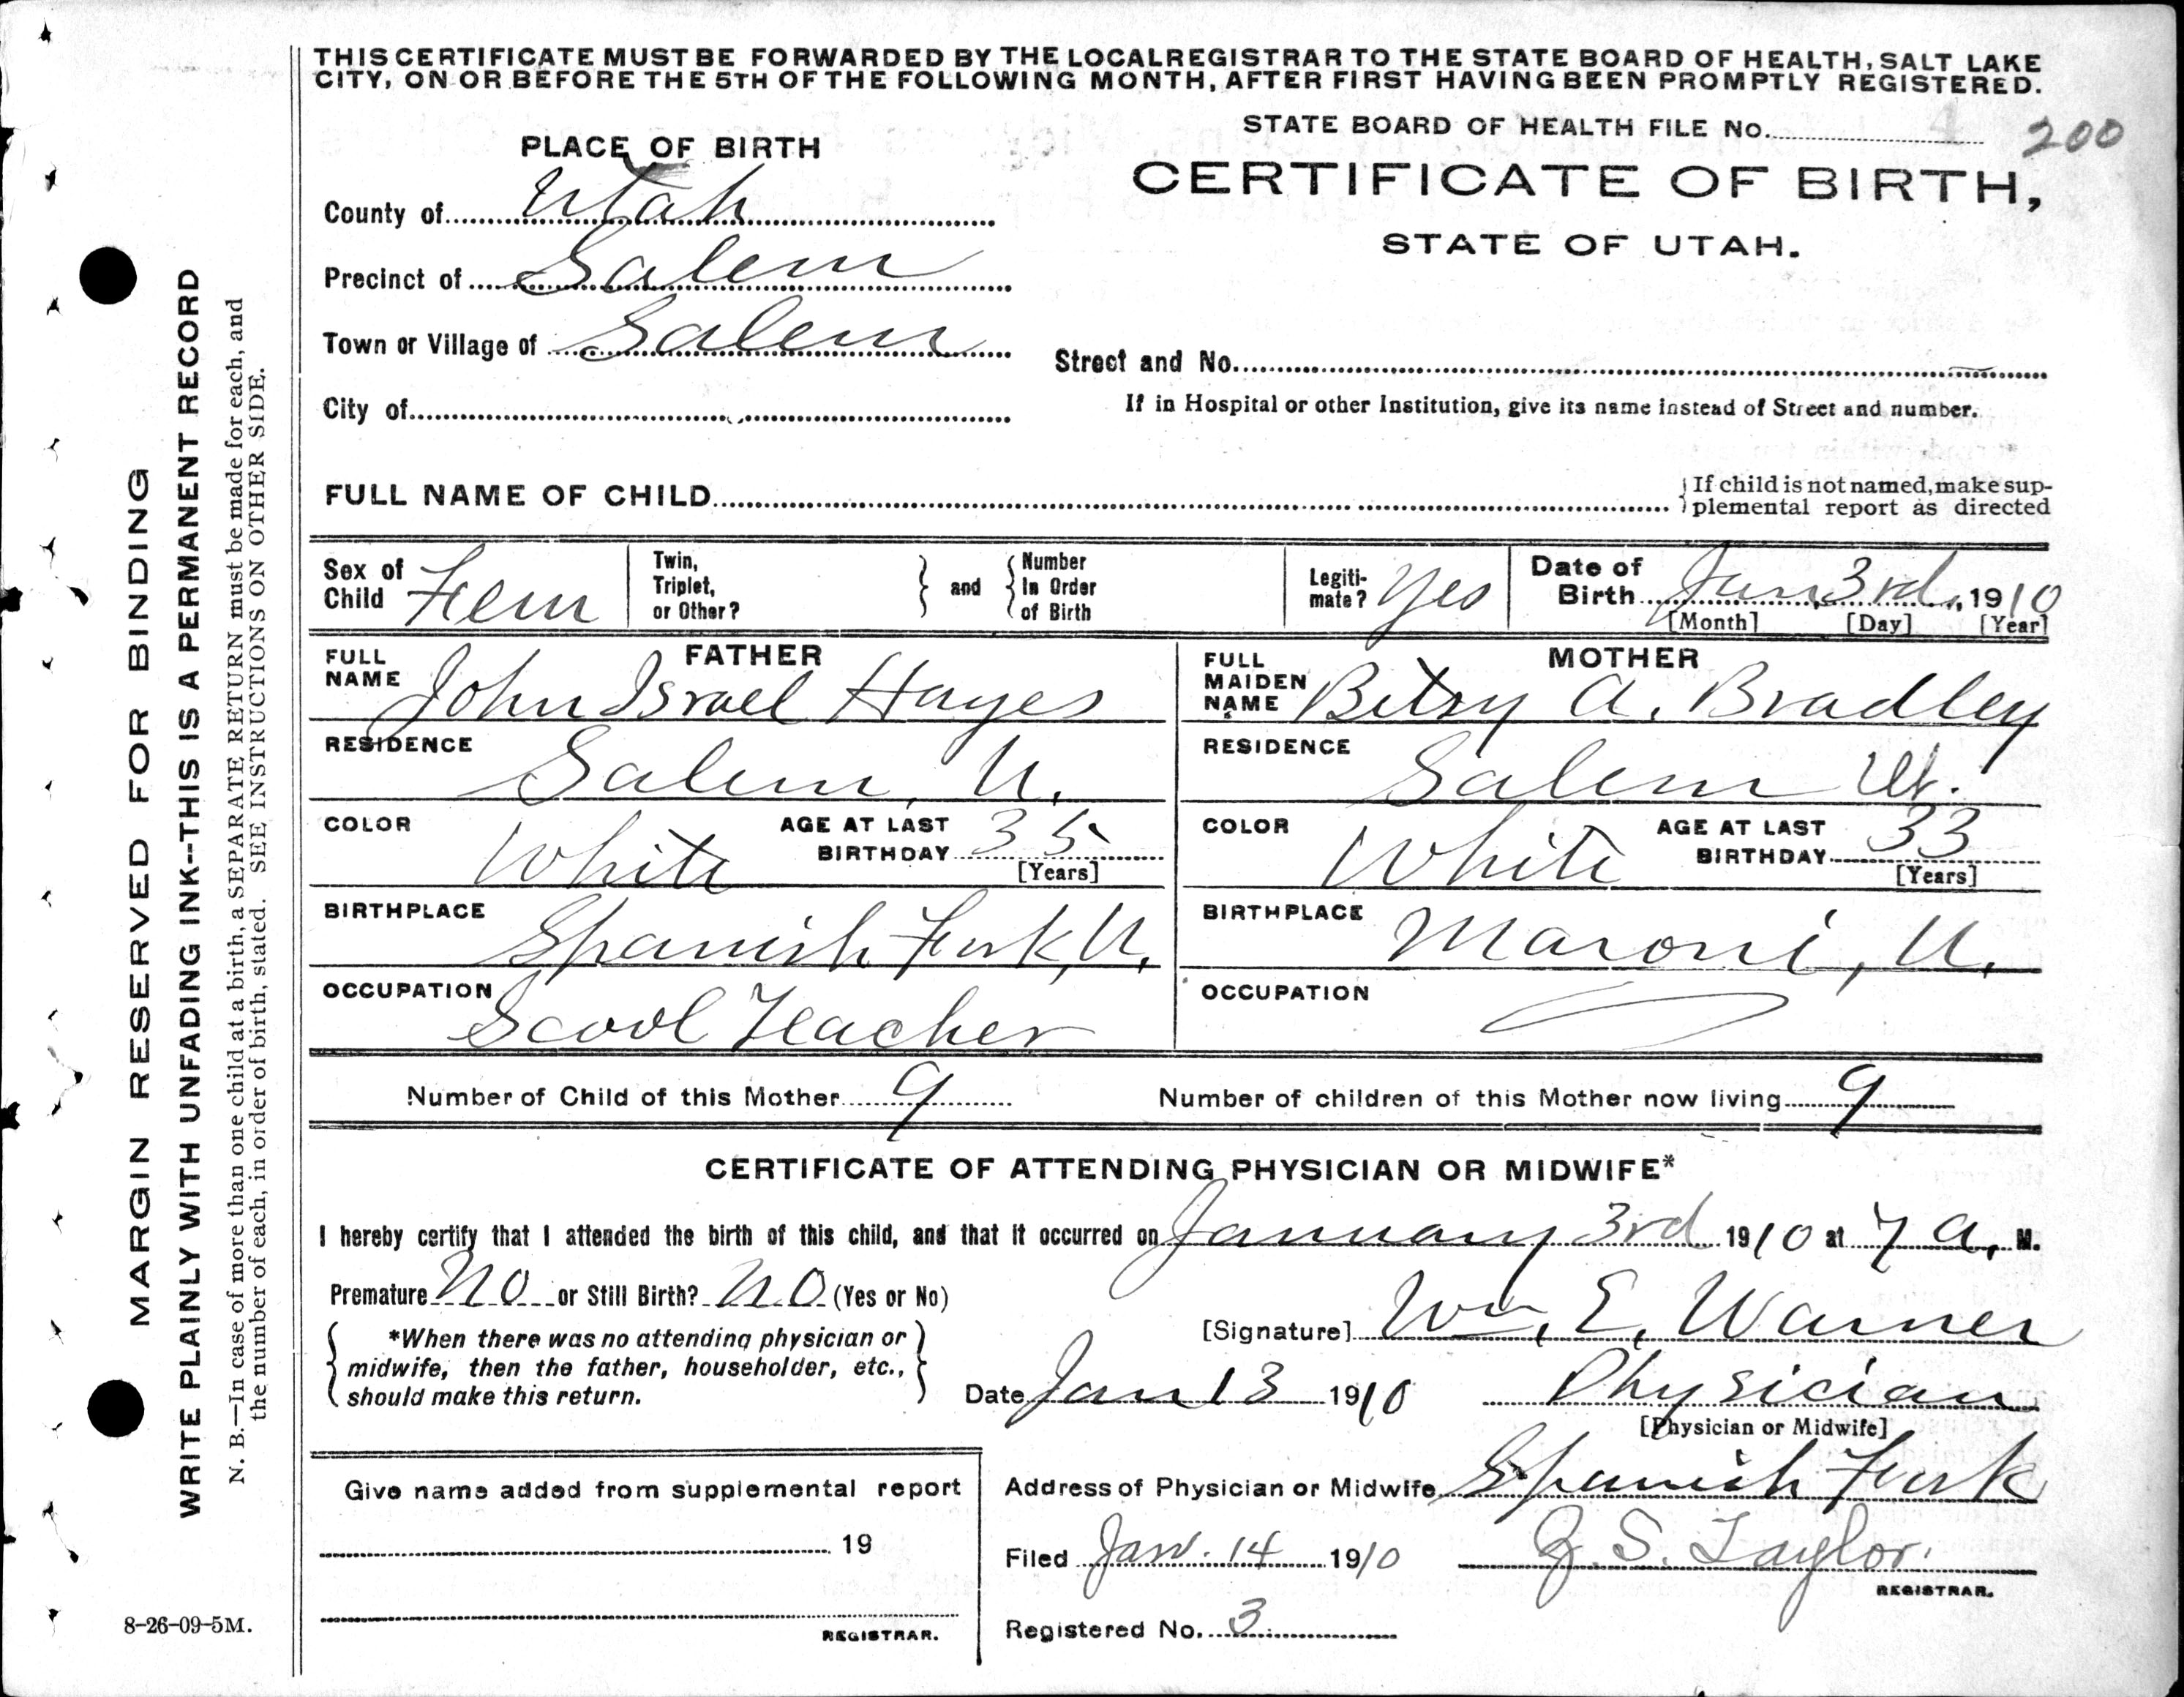 THIS CERTIFICATE MUST BE FORWARDED BY THE LOCAL REGISTRAR TO THE STATE BOARD OF HEALTH, SALT LAKE
CITY, ON OR BEFORE THE 5TH OF THE FOLLOWING MONTH, AFTER FIRST HAVING BEEN PROMPTLY REGISTERED.
STATE BOARD OF HEALTH FILE No. 4 200
PLACE OF BIRTH
CERTIFICATE OF BIRTH,
STATE OF UTAH.
County of Utah
Precinct of Salem
Town or Village of Salem
Street and No.
City of
If in Hospital or other Institution, give its name instead of Street and number.
FULL NAME OF CHILD
If child is not named, make sup-
plemental report as directed
Sex of Child Fem
Twin, Triplet, or Other?
and
Number In Order of Birth
Legiti-mate? Yes
Date of Birth Jan, 3rd, 1910
[Month] [Day] [Year]
FATHER
FULL NAME John Israel Hayes
RESIDENCE
Salem, U.
COLOR White
AGE AT LAST BIRTHDAY 35
[Years]
BIRTHPLACE
Spanish Fork, U.
OCCUPATION
Scool Teacher
MOTHER
FULL MAIDEN NAME Betsy A. Bradley
RESIDENCE
Salem Ut.
COLOR White
AGE AT LAST BIRTHDAY 33
[Years]
BIRTHPLACE
Maroni, U.
OCCUPATION
Number of Child of this Mother 9
Number of children of this Mother now living 9
CERTIFICATE OF ATTENDING PHYSICIAN OR MIDWIFE*
I hereby certify that I attended the birth of this child, and that it occurred on January 3rd 1910 at 7 a. M.
Premature No or Still Birth? No (Yes or No)
[Signature] Wm. E. Warner
*When there was no attending physician or
midwife, then the father, householder, etc.,
should make this return.
Date Jan 13 1910
Physician
[Physician or Midwife]
Give name added from supplemental report
19
REGISTRAR.
Address of Physician or Midwife Spanish Fork
Filed Jan. 14 1910
J. S. Taylor.
REGISTRAR.
Registered No. 3
MARGIN RESERVED FOR BINDING
WRITE PLAINLY WITH UNFADING INK--THIS IS A PERMANENT RECORD
N. B.—In case of more than one child at a birth, a SEPARATE RETURN must be made for each, and
the number of each, in order of birth, stated. SEE INSTRUCTIONS ON OTHER SIDE.
8-26-09-5M.